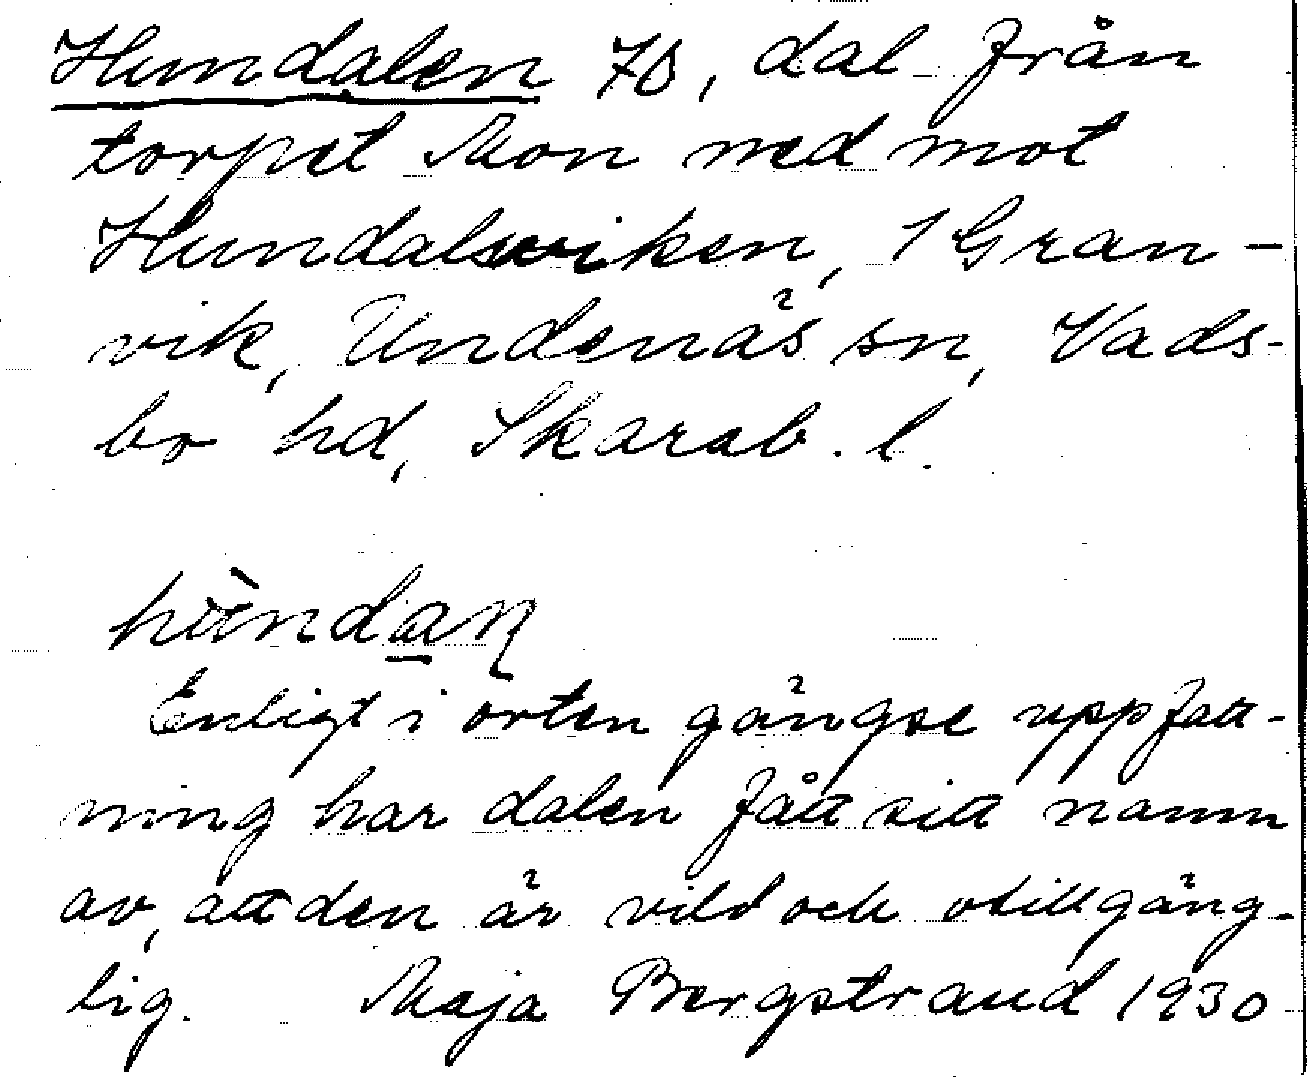 Hundalen 7D, dal från
torpet Mon ned mot
Hundalsviken, 1 Gran-
vik, Undenäs sn, Vads-
bo hd, Skarab. l.
hùndaɳ
Enligt i orten gängse uppfatt-
ning har dalen fått sitt namn
av, att den är vild och otillgäng-
lig. Maja Bergstrand 1930